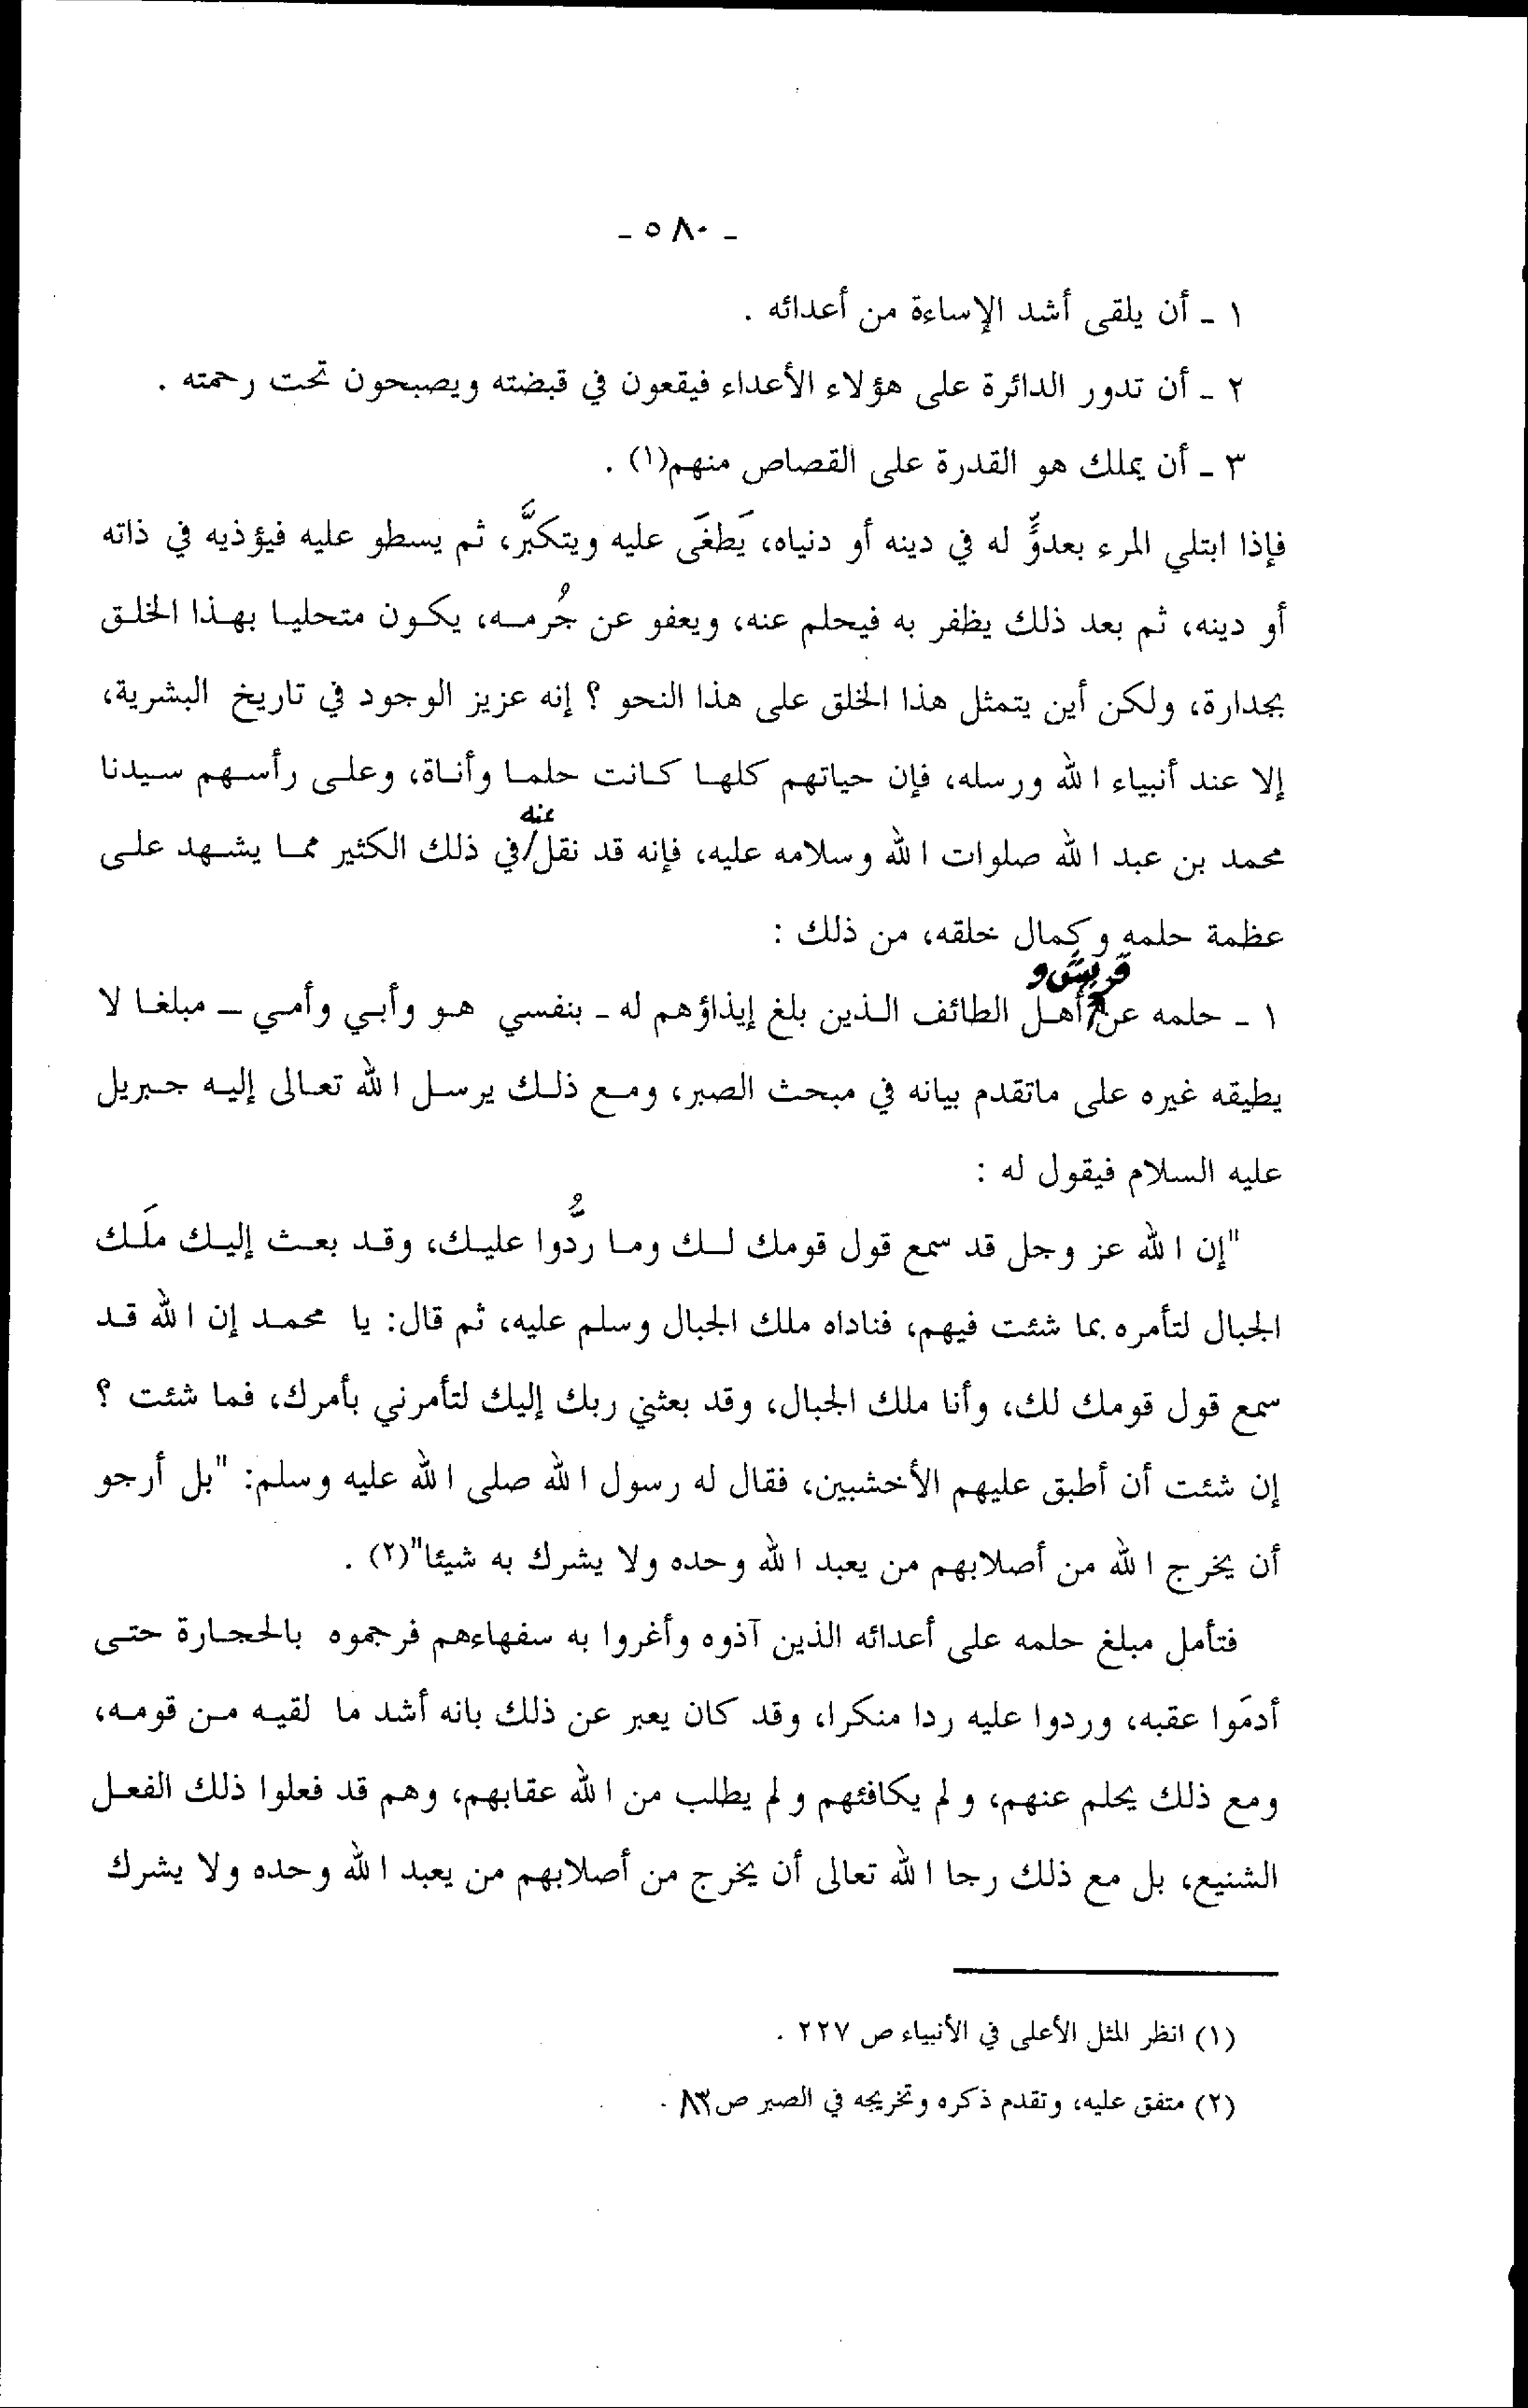 - ٥٨٠ -
١ - أن يلقى أشد الإساءة من أعدائه .
٢ - أن تدور الدائرة على هؤلاء الأعداء فيقعون في قبضته ويصبحون تحت رحمته .
٣ - أن يملك هو القدرة على القصاص منهم(١) .
فإذا ابتلي المرء بعدوٍّ له في دينه أو دنياه، يَطغَى عليه ويتكبَّر، ثم يسطو عليه فيؤذيه في ذاته
أو دينه، ثم بعد ذلك يظفر به فيحلم عنه، ويعفو عن جُرمه، يكون متحليا بهذا الخلق
بجدارة، ولكن أين يتمثل هذا الخلق على هذا النحو ؟ إنه عزيز الوجود في تاريخ البشرية،
إلا عند أنبياء الله ورسله، فإن حياتهم كلها كانت حلما وأناة، وعلى رأسهم سيدنا
محمد بن عبد الله صلوات الله وسلامه عليه، فإنه قد نقل/عنه في ذلك الكثير مما يشهد على
عظمة حلمه وكمال خلقه، من ذلك :
١ - حلمه عن قريش و أهل الطائف الذين بلغ إيذاؤهم له - بنفسي هو وأبي وأمي - مبلغا لا
يطيقه غيره على ماتقدم بيانه في مبحث الصبر، ومع ذلك يرسل الله تعالى إليه جبريل
عليه السلام فيقول له :
"إن الله عز وجل قد سمع قول قومك لك وما ردُّوا عليك، وقد بعث إليك ملَك
الجبال لتأمره بما شئت فيهم، فناداه ملك الجبال وسلم عليه، ثم قال: يا محمد إن الله قد
سمع قول قومك لك، وأنا ملك الجبال، وقد بعثني ربك إليك لتأمرني بأمرك، فما شئت ؟
إن شئت أن أطبق عليهم الأخشبين، فقال له رسول الله صلى الله عليه وسلم: "بل أرجو
أن يخرج الله من أصلابهم من يعبد الله وحده ولا يشرك به شيئا"(٢) .
فتأمل مبلغ حلمه على أعدائه الذين آذوه وأغروا به سفهاءهم فرجموه بالحجارة حتى
أدمَوا عقبه، وردوا عليه ردا منكرا، وقد كان يعبر عن ذلك بانه أشد ما لقيه من قومه،
ومع ذلك يحلم عنهم، ولم يكافئهم ولم يطلب من الله عقابهم، وهم قد فعلوا ذلك الفعل
الشنيع، بل مع ذلك رجا الله تعالى أن يخرج من أصلابهم من يعبد الله وحده ولا يشرك
(١) انظر المثل الأعلى في الأنبياء ص ٢٢٧ .
(٢) متفق عليه، وتقدم ذكره وتخريجه في الصبر ص٨٣ .